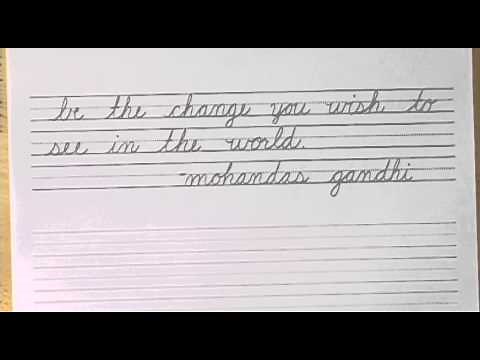 be the change you wish to
see in the world.
-mohandas gandhi